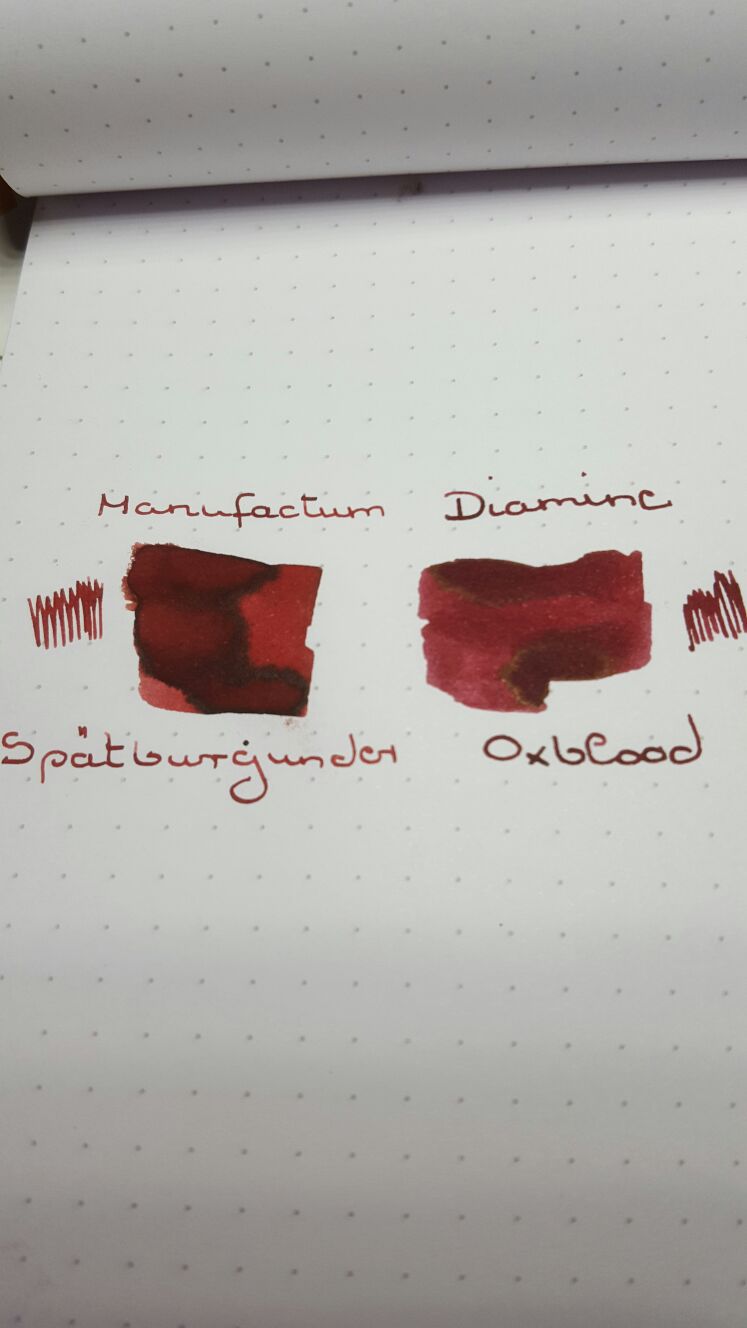 Manufactum
Spätburgunder
Diamine
Oxblood